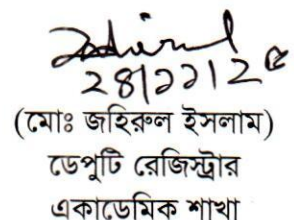 ২৪|১১|২৫
(মোঃ জহিরুল ইসলাম)
ডেপুটি রেজিস্ট্রার
একাডেমিক শাখা